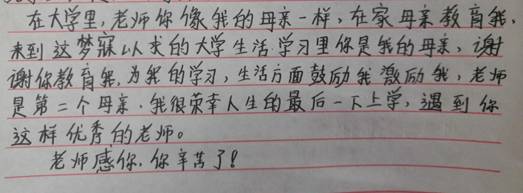 在大学里,老师你像我的母亲一样,在家母亲教育我,
来到这梦寐以求的大学生活学习里你是我的母亲,谢
谢你教育我,为我的学习,生活方面鼓励我激励我,老师
是第二个母亲.我很荣幸人生的最后一下上学,遇到你
这样优秀的老师。
老师感你,你辛苦了!